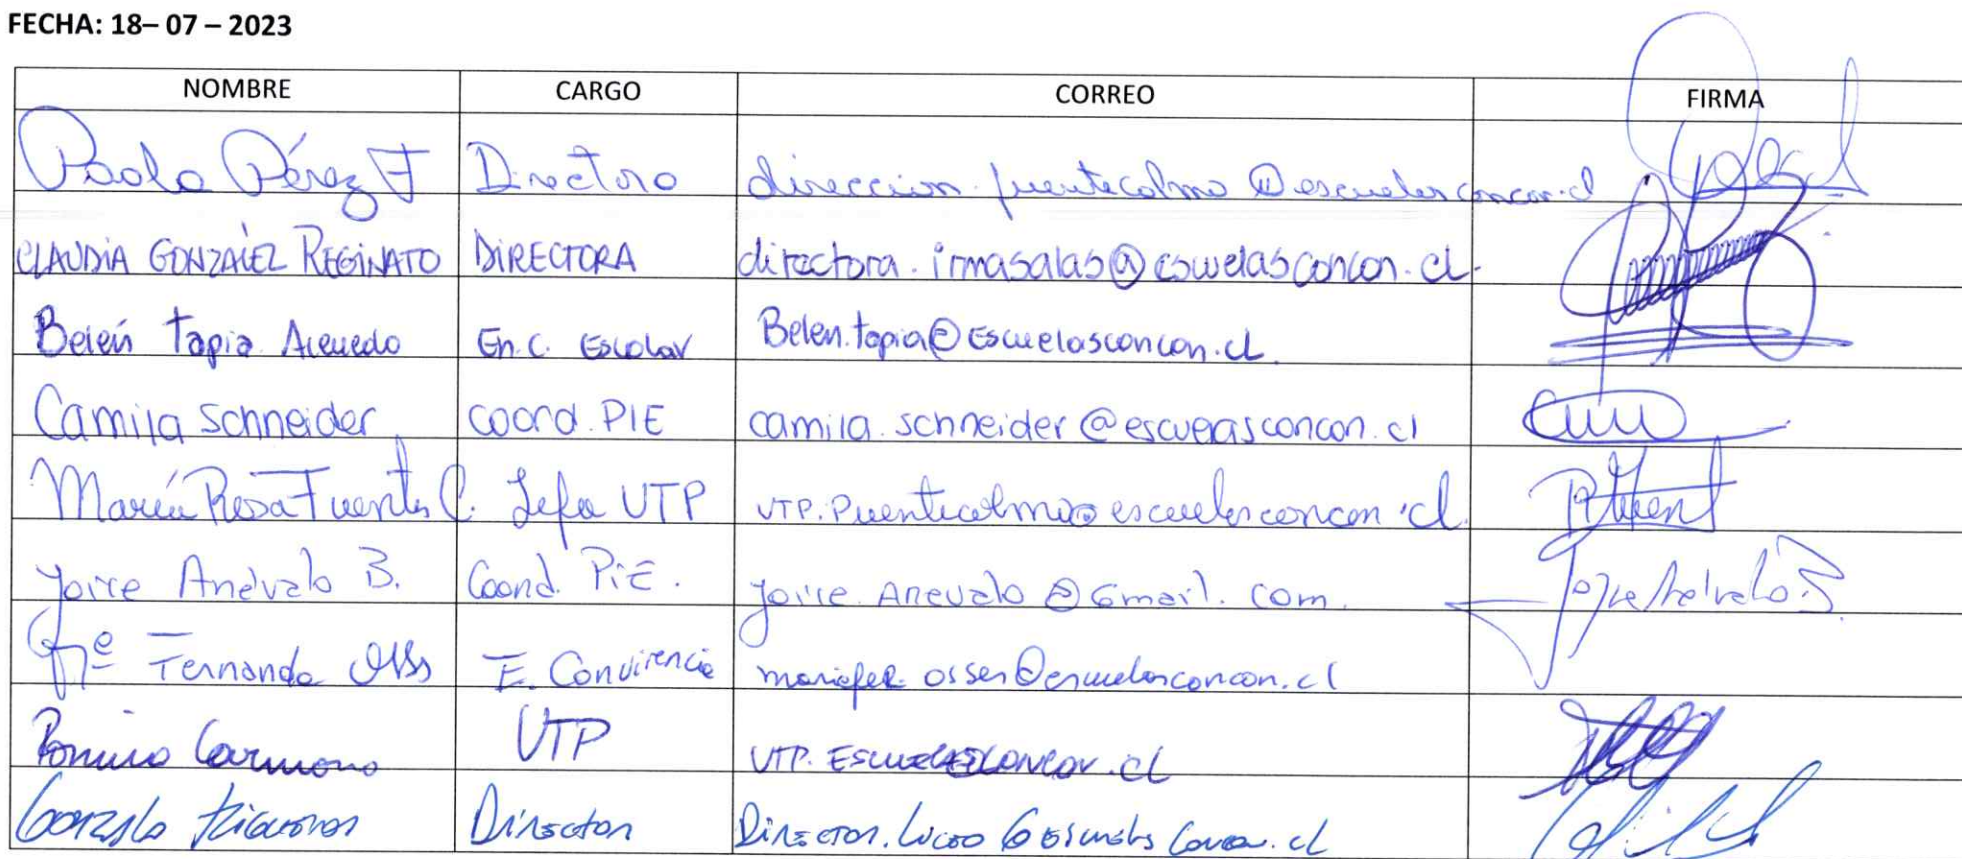 FECHA: 18– 07 – 2023
NOMBRE CARGO CORREO FIRMA
Paola Pérez F Directora direccion.puentecolmo@escuelasconcon.cl
CLAUDIA GONZALEZ REGINATO DIRECTORA directora.irmasalas@escuelasconcon.cl.
Belén Tapia Acevedo En.C. Escolar Belen.tapia@Escuelasconcon.cl.
Camila Schneider Coord. PIE camila.schneider@escuelasconcon.cl
María Rosa Fuentes C. Jefa UTP UTP.Puentecolmo@escuelasconcon.cl.
Joice Arévalo B. Coord. PiE. Joice.Arevalo@Gmail.com.
Mª Fernanda E. Convivencia marifer.osses@escuelasconcon.cl
Romina Carmona UTP UTP. .cl
Gonzalo Director Director.Liceo@Escuelas Concon.cl